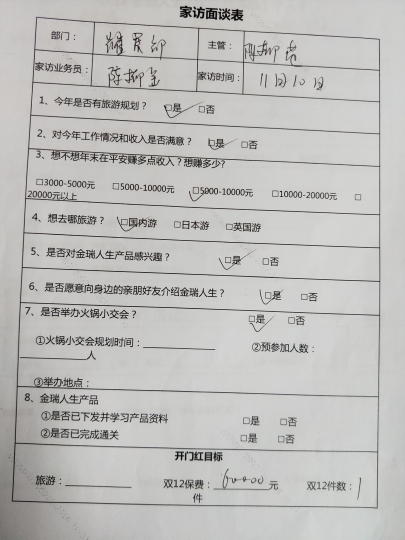 家访面谈表
部门： 主管：
家访业务员： 家访时间：11月10日
1、今年是否有旅游规划？ □是 □否
2、对今年工作情况和收入是否满意？ □是 □否
3、想不想年末在平安赚多点收入？想赚多少?
□3000-5000元 □5000-10000元 □5000-10000元 □10000-20000元 □
20000元以上
4、想去哪旅游？ □国内游 □日本游 □英国游
5、是否对金瑞人生产品感兴趣？ □是 □否
6、是否愿意向身边的亲朋好友介绍金瑞人生？ □是 □否
7、是否举办火锅小交会？ □是 □否
①火锅小交会规划时间：____________ ②预参加人数：
____________人
③举办地点：
8、金瑞人生产品
①是否已下发并学习产品资料 □是 □否
②是否已完成通关 □是 □否
开门红目标
旅游：____________ 双12保费：60000元 双12件数：1
件